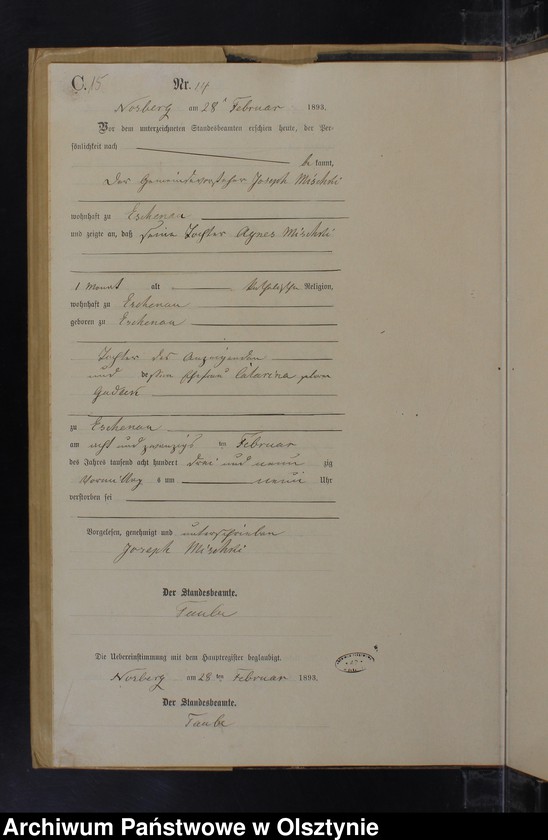 C. 15 Nr. 14
Norberg am 28ᵗ Februar 1893.
Vor dem unterzeichneten Standesbeamten erschien heute, der Per-
sönlichkeit nach
be kannt,
der Gemeindevorsteher Joseph Mischki
wohnhaft zu Eschenau
und zeigte an, daß seine Tochter Agnes Mischki
1 Monat alt katholischer Religion,
wohnhaft zu Eschenau
geboren zu Eschenau
Tochter des Anzeigenden
und dessen Ehefrau Catarina geborene
zu Eschenau
am acht und zwanzigs ten Februar
des Jahres tausend acht hundert drei und neun zig
Vormittag s um neun Uhr
verstorben sei
Vorgelesen, genehmigt und unterschrieben
Joseph Mischki
Der Standesbeamte.
Taube
Die Uebereinstimmung mit dem Hauptregister beglaubigt.
Norberg am 28 ten Februar 1893.
Der Standesbeamte.
Taube
Archiwum Państwowe w Olsztynie